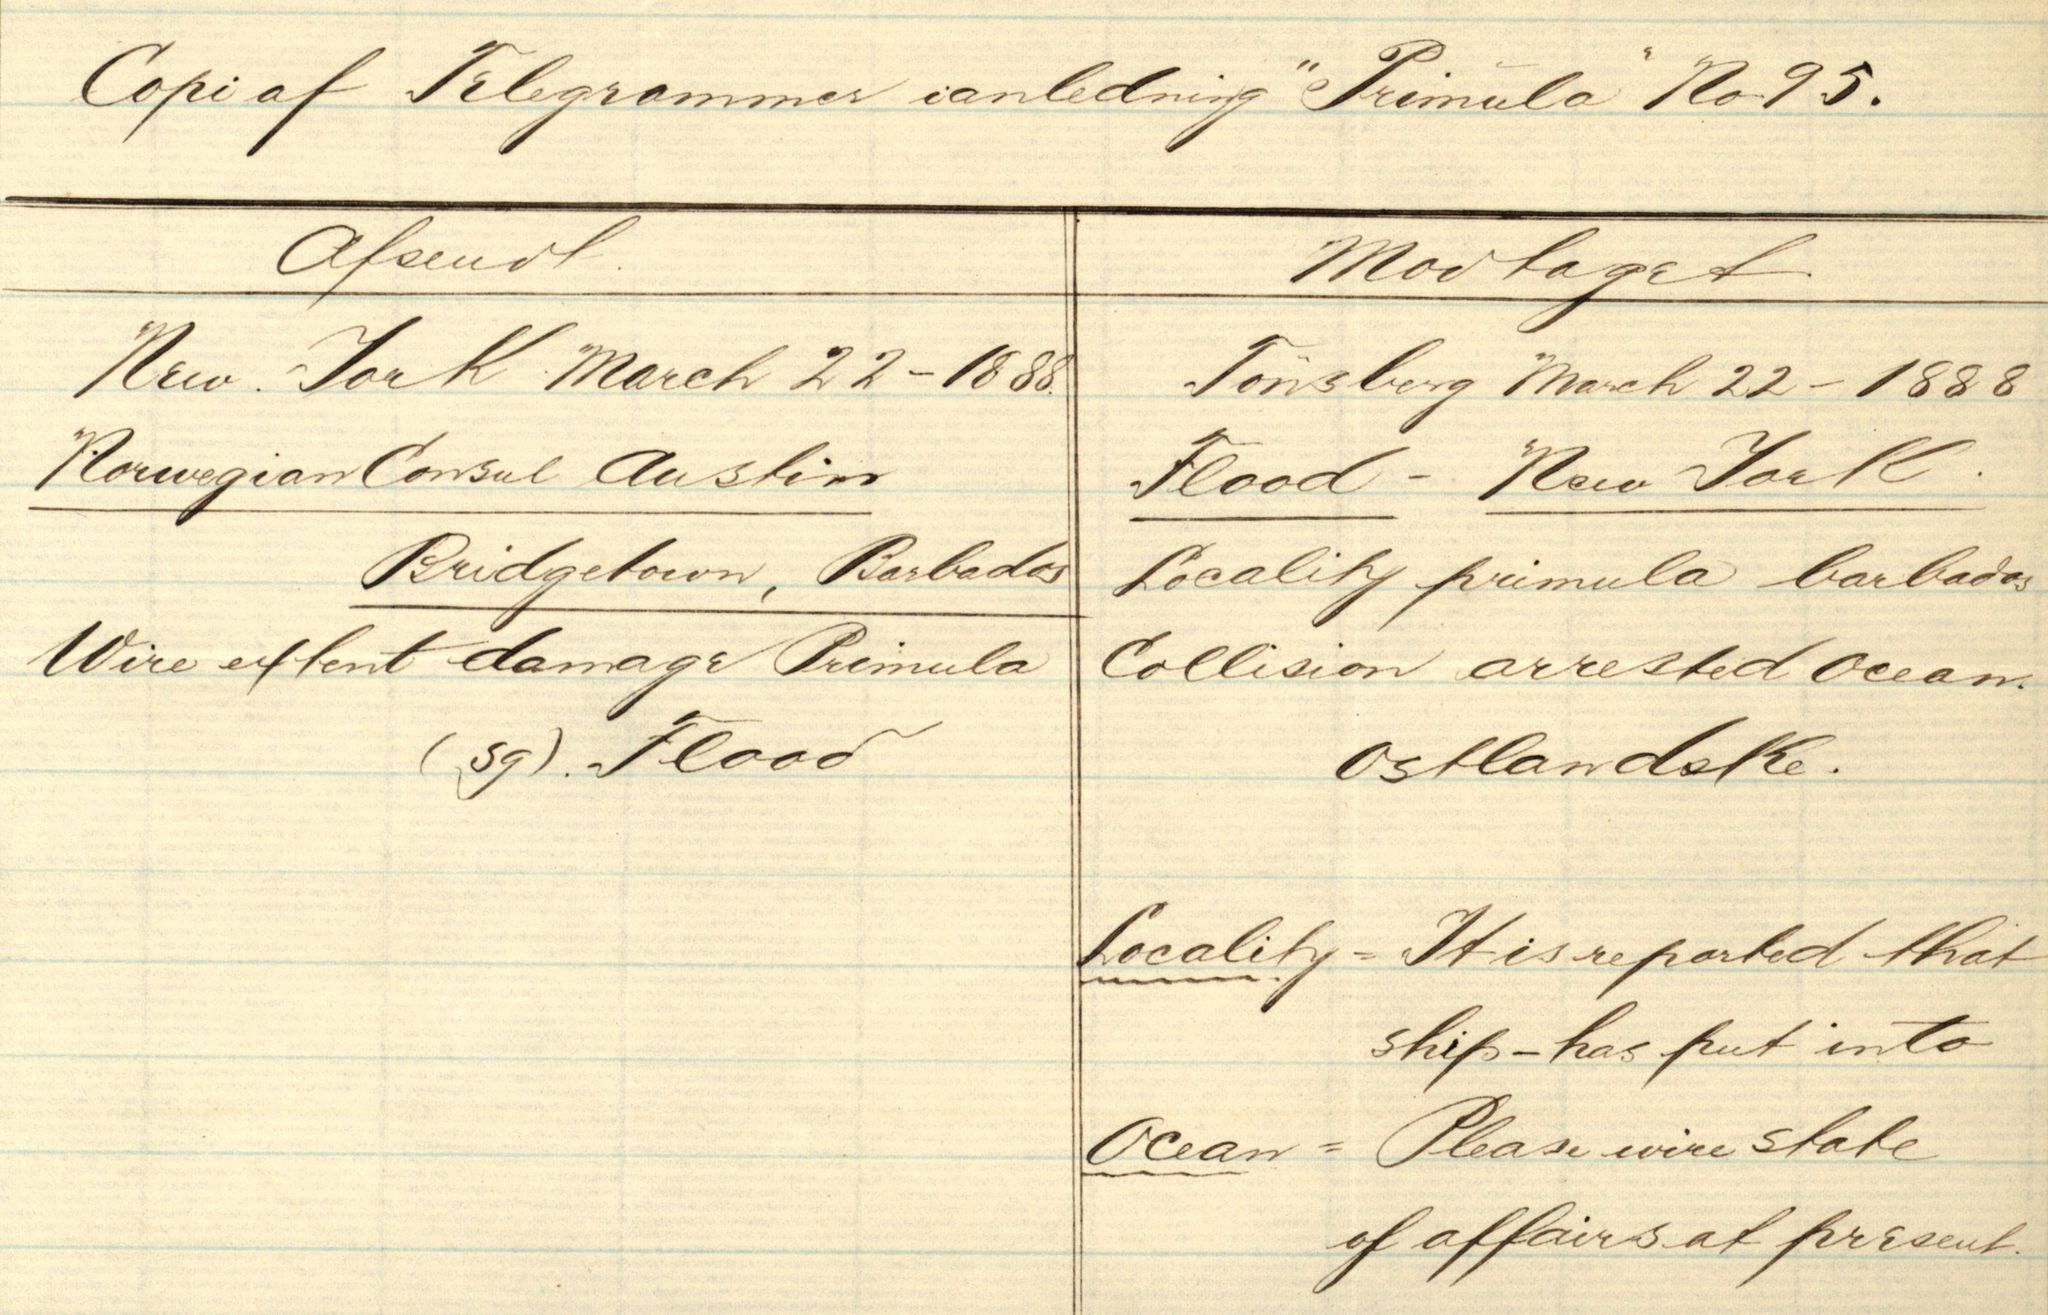 Copi af Telegrammer ianledning "Primula" No 95.
Afsendt.
New. York March 22-1888.
Norwegian Consul Austin
Bridgetown, Barbados
Wire extent damage Primula
(sg). Flood
Modtaget.
Tönsberg March 22-1888
Flood - New York.
Locality primula barbados
Collision arrested Ocean.
Ostlandske.
Locality = It is reported that
ship - has put into
Ocean = Please wire state
of affairs at present.